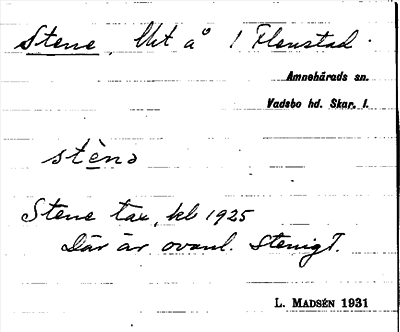 Stene, lht å 1 Flenstad.
Amnehärads sn.
Vadsbo hd. Skar. l.
stènə
Stene tax, kl 1925
Där är ovanl. stenigt.
L. MADSÉN 1931